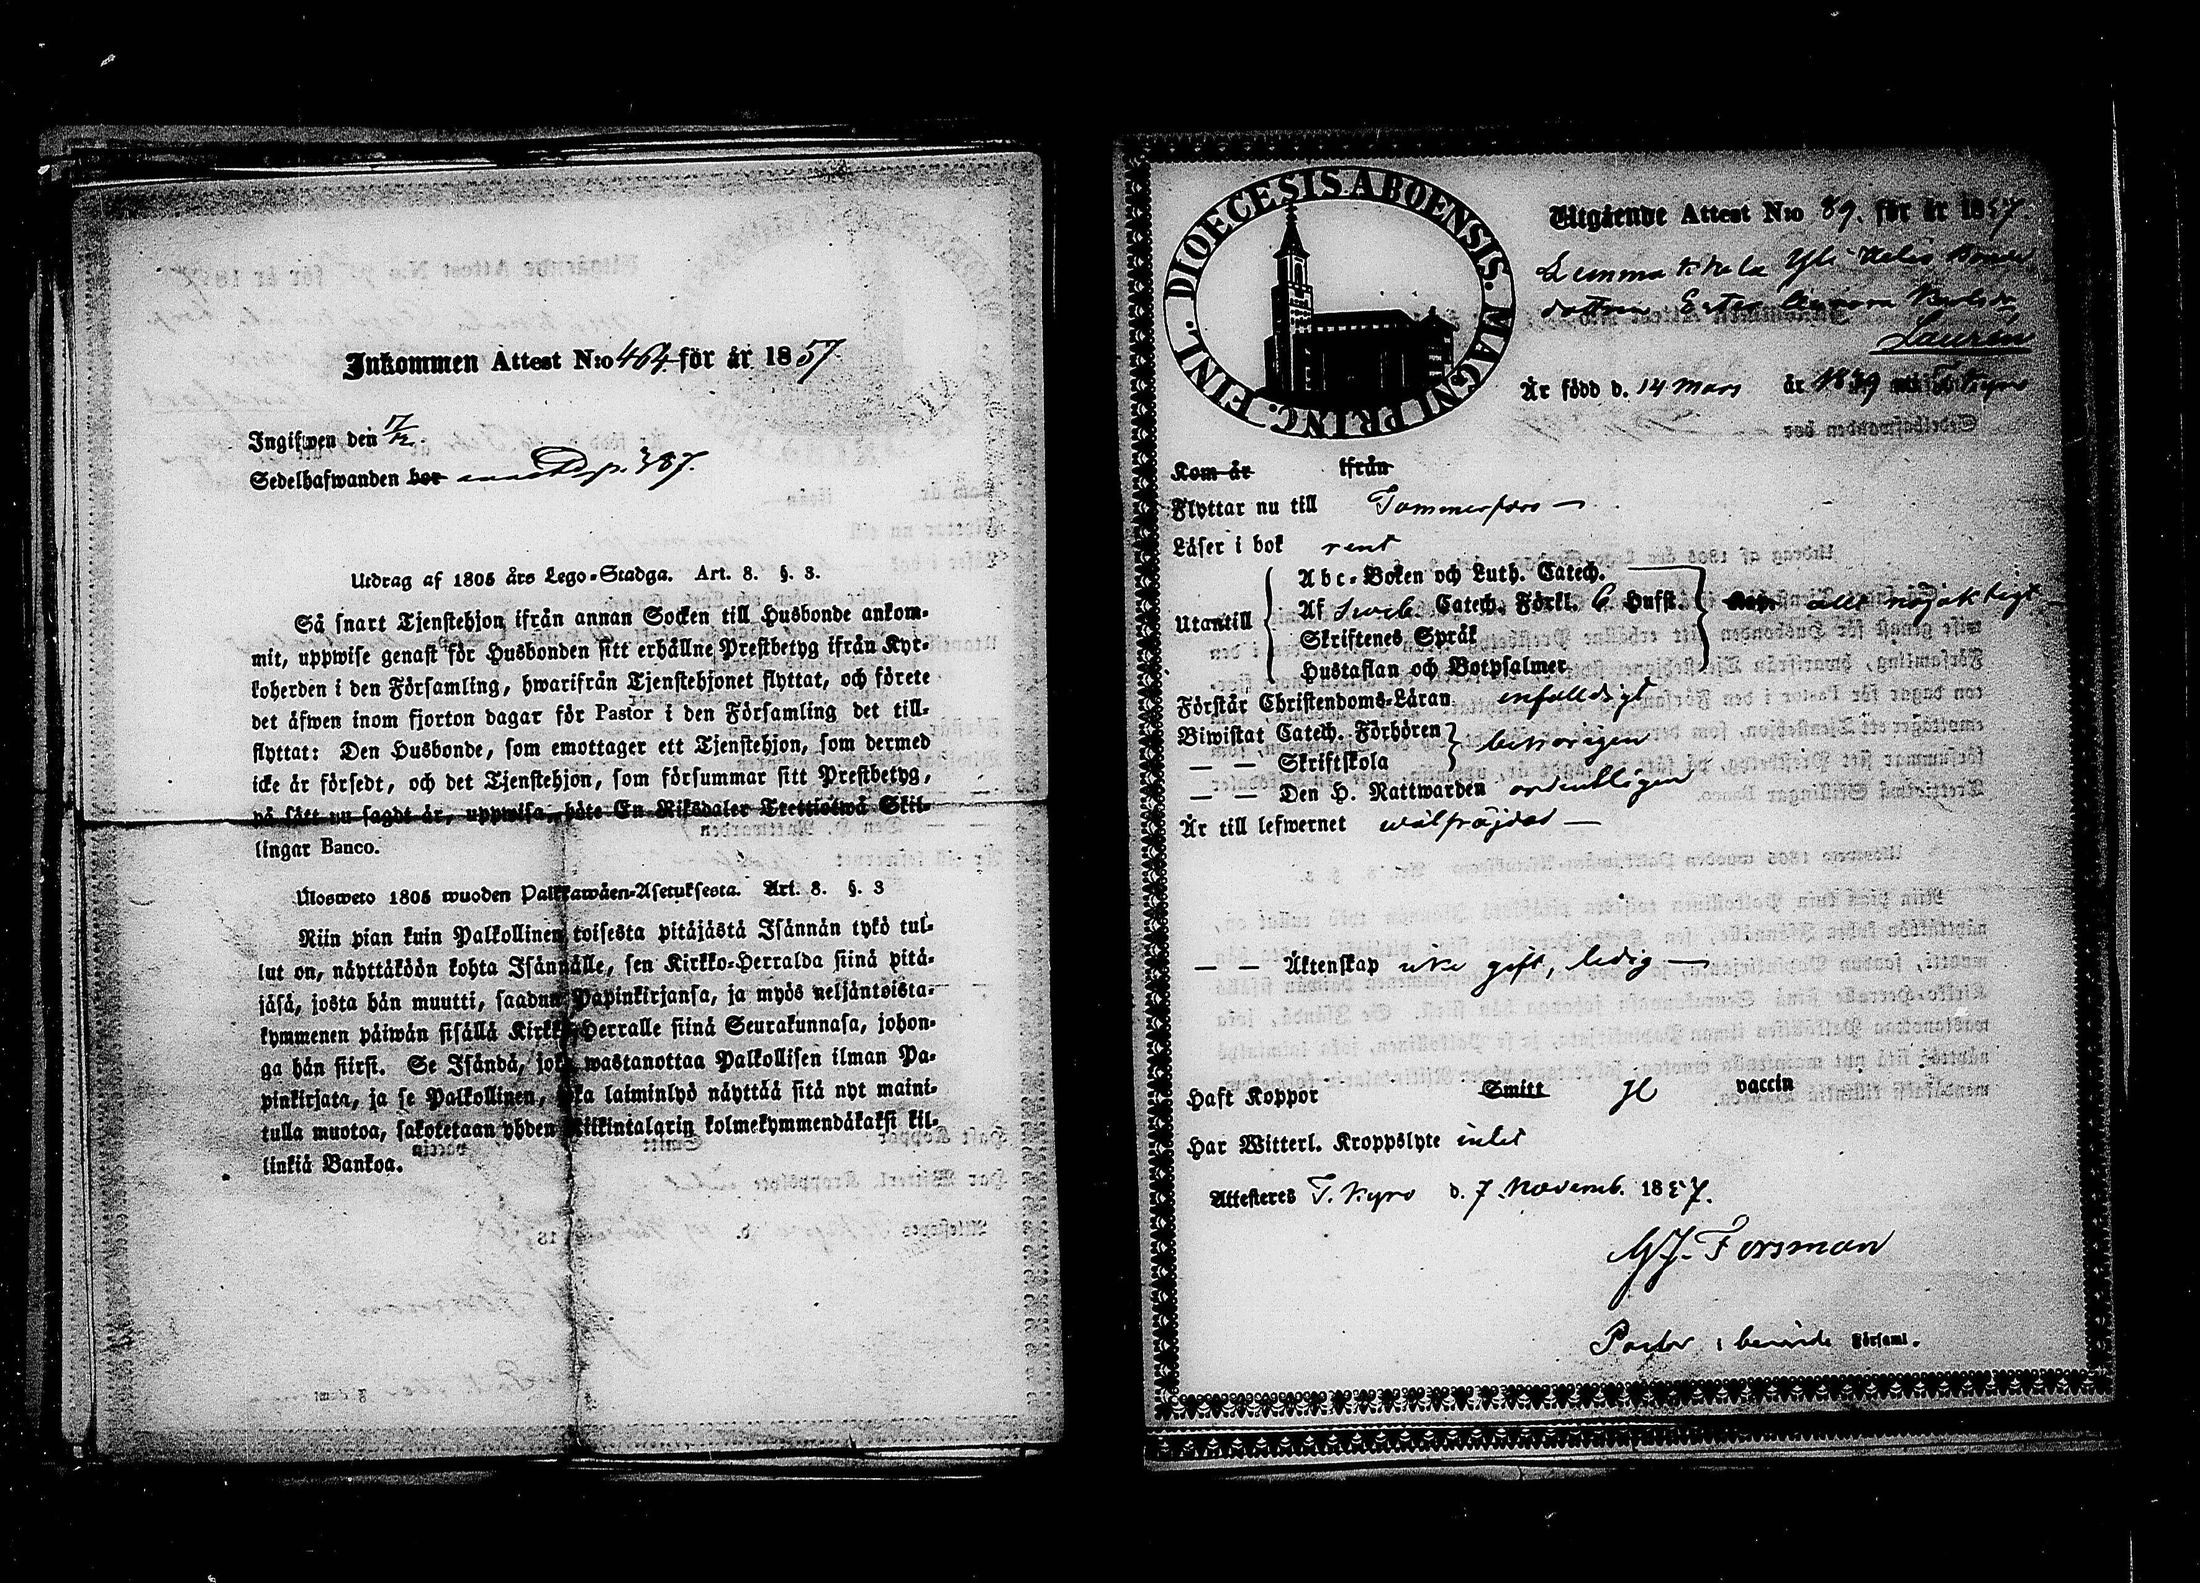 Inkommen Attest N:o 464 för år 1857
Ingifwen den 17/12.
Sedelhafwanden bor pag. 387.
Utdrag af 1805 års Lego-Stadga. Art. 8. §. 3.
Så snart Tjenstehjon ifrån annan Socken till Husbonde ankom-
mit, uppwise genast för Husbonden sitt erhållne Prestbetyg ifrån Kyr-
koherden i den Församling, hwarifrån Tjenstehjonet flyttat, och förete
det äfwen inom fjorton dagar för Pastor i den Församling det till-
flyttat: Den Husbonde, som emottager ett Tjenstehjon, som dermed
icke är försedt, och det Tjenstehjon, som försummar sitt Prestbetyg,
på sätt nu sagdt är, uppwisa, böte En Riksdaler Trettiotwå Skil-
lingar Banco.
Ulosweto 1805 wuoden Palkkawäen-Asetuksesta. Art. 8. §. 3
Niin pian kuin Palkollinen toisesta pitäjästä Isännän tykö tul-
lut on, näyttäköön kohta Isännälle, sen Kirkko-Herralda siinä pitä-
jäsä, josta hän muutti, saadun Papinkirjansa, ja myös neljäntoista-
kymmenen päiwän sisällä Kirkko-Herralle siinä Seurakunnasa, johon-
ga hän siirsi. Se Isändä, joka wastanottaa Palkollisen ilman Pa-
pinkirjata, ja se Palkollinen, joka laiminlyö näyttää sitä nyt maini-
tulla muotoa, sakotetaan yhden Riikintalarin kolmekymmendäkaksi kil-
linkiä Bankoa.
FINL. DIOECESIS ABOENSIS. MAGNI PRINC.
Utgående Attest N:o 89. för år 1857.
Lemmakkala Yli Helis Bonde
dottren Ester Karlsdr
Laurén
Är född d. 14 Mars år 1839 uti T. Kyro
Kom år ifrån
Flyttar nu till Tammerfors
Läser i bok rent
Utantill
Abc-Boken och Luth. Catech.
Af Sveb. Catech. Förkl. C. Hufst.
Skriftenes Språk
Hustaflan och Botpsalmer
Kap. allt nöjaktigt
Förstår Christendoms-Läran enfaldigt
Biwistat Catech. Förhören
— — Skriftskola
behörigen
— — Den H. Nattwarden ordentligen
Är till lefwernet wälfräjdad —
— — Äktenskap icke gift, ledig —
Haft Koppor Smitt vaccin
Har Witterl. Kroppslyte intet
Attesteras T. Kyro d. 7 Novemb. 1857.
Forsman
Pastor i berörde Församl.